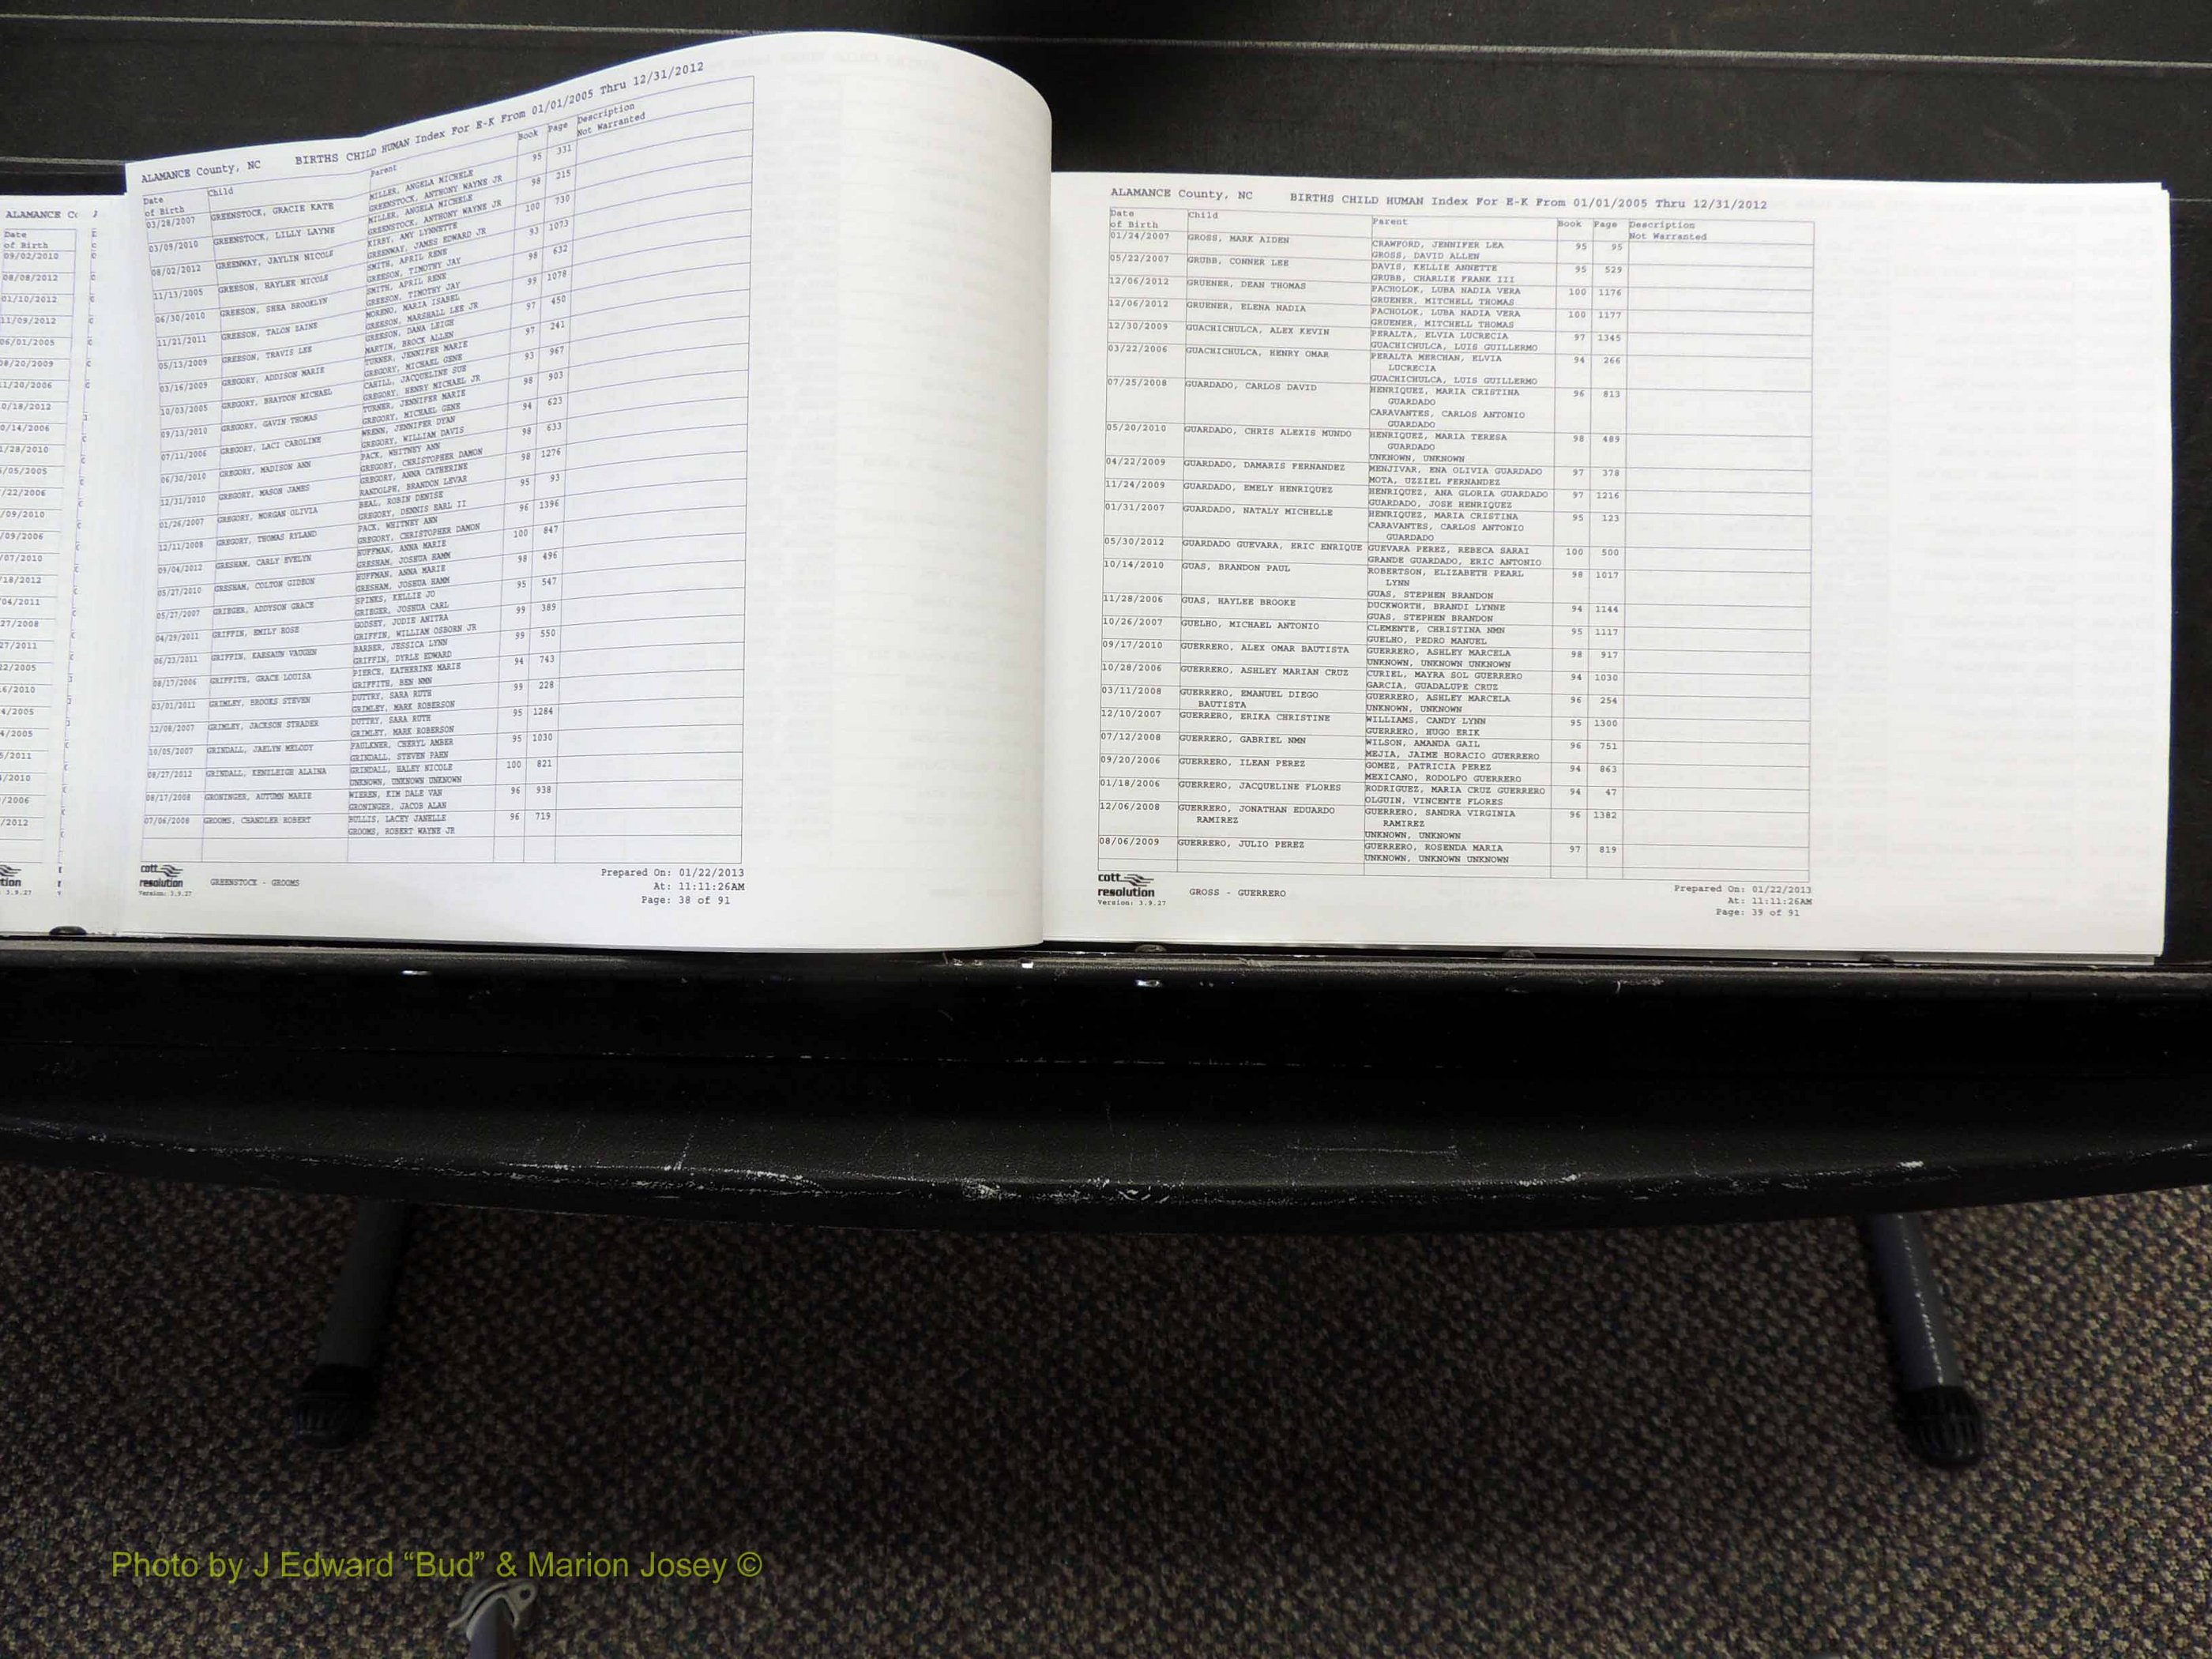 ALAMANCE Co
Date
of Birth
09/02/2010
08/08/2012
01/10/2012
11/09/2012
06/01/2005
08/20/2009
ALAMANCE County, NC BIRTHS CHILD HUMAN Index For E-K From 01/01/2005 Thru 12/31/2012
Date of Birth Child Parent Book Page Description Not Warranted
03/28/2007 GREENSTOCK, GRACIE KATE MILLER, ANGELA MICHELE 95 331
GREENSTOCK, ANTHONY WAYNE JR
03/09/2010 GREENSTOCK, LILLY LAYNE MILLER, ANGELA MICHELE 98 215
GREENSTOCK, ANTHONY WAYNE JR
08/02/2012 GREENWAY, JAYLIN NICOLE KIRBY, AMY LYNNETTE 100 730
GREENWAY, JAMES EDWARD JR
11/13/2005 GREESON, HAYLEE NICOLE SMITH, APRIL RENE 93 1073
GREESON, TIMOTHY JAY
06/30/2010 GREESON, SHEA BROOKLYN SMITH, APRIL RENE 98 632
GREESON, TIMOTHY JAY
11/21/2011 GREESON, TALON ZAINE MORENO, MARIA ISABEL 99 1078
GREESON, MARSHALL LEE JR
05/13/2009 GREESON, TRAVIS LEE GREESON, DANA LEIGH 97 450
MARTIN, BROCK ALLEN
03/16/2009 GREGORY, ADDISON MARIE TURNER, JENNIFER MARIE 97 241
GREGORY, MICHAEL GENE
10/03/2005 GREGORY, BRAYDON MICHAEL CAHILL, JACQUELINE SUE 93 967
GREGORY, HENRY MICHAEL JR
09/13/2010 GREGORY, GAVIN THOMAS TURNER, JENNIFER MARIE 98 903
GREGORY, MICHAEL GENE
07/11/2006 GREGORY, LACI CAROLINE WRENN, JENNIFER DYAN 94 623
GREGORY, WILLIAM DAVIS
06/30/2010 GREGORY, MADISON ANN PACK, WHITNEY ANN 98 633
GREGORY, CHRISTOPHER DAMON
12/31/2010 GREGORY, MASON JAMES GREGORY, ANNA CATHERINE 98 1276
RANDOLPH, BRANDON LEVAR
01/26/2007 GREGORY, MORGAN OLIVIA BEAL, ROBIN DENISE 95 93
GREGORY, DENNIS EARL II
12/11/2008 GREGORY, THOMAS RYLAND PACK, WHITNEY ANN 96 1396
GREGORY, CHRISTOPHER DAMON
09/04/2012 GRESHAM, CARLY EVELYN HUFFMAN, ANNA MARIE 100 847
GRESHAM, JOSHUA HAMM
05/27/2010 GRESHAM, COLTON GIDEON HUFFMAN, ANNA MARIE 98 496
GRESHAM, JOSHUA HAMM
05/27/2007 GRIEGER, ADDYSON GRACE SPINKS, KELLIE JO 95 547
GRIEGER, JOSHUA CARL
04/29/2011 GRIFFIN, EMILY ROSE GODSEY, JODIE ANITRA 99 389
GRIFFIN, WILLIAM OSBORN JR
06/23/2011 GRIFFIN, KAESAUN VAUGHN BARBER, JESSICA LYNN 99 550
GRIFFIN, DYRLE EDWARD
08/17/2006 GRIFFITH, GRACE LOUISA PIERCE, KATHERINE MARIE 94 743
GRIFFITH, BEN NMN
03/01/2011 GRIMLEY, BROOKS STEVEN DUTTRY, SARA RUTH 99 228
GRIMLEY, MARK ROBERSON
12/08/2007 GRIMLEY, JACKSON STRADER DUTTRY, SARA RUTH 95 1284
GRIMLEY, MARK ROBERSON
10/05/2007 GRINDALL, JAELYN MELODY FAULKNER, CHERYL AMBER 95 1030
GRINDALL, STEVEN PAHN
08/27/2012 GRINDALL, KENILEIGH ALAINA GRINDALL, HALEY NICOLE 100 821
UNKNOWN, UNKNOWN UNKNOWN
08/17/2008 GRONINGER, AUTUMN MARIE WIEREN, KIM DALE VAN 96 938
GRONINGER, JACOB ALAN
07/06/2008 GROOMS, CHANDLER ROBERT BULLIS, LACEY JANELLE 96 719
GROOMS, ROBERT WAYNE JR
cott
resolution
Version: 3.9.27
GREENSTOCK - GROOMS
Prepared On: 01/22/2013
At: 11:11:26AM
Page: 38 of 91
ALAMANCE County, NC BIRTHS CHILD HUMAN Index For E-K From 01/01/2005 Thru 12/31/2012
Date of Birth Child Parent Book Page Description Not Warranted
01/24/2007 GROSS, MARK AIDEN CRAWFORD, JENNIFER LEA 95 95
GROSS, DAVID ALLEN
05/22/2007 GRUBB, CONNER LEE DAVIS, KELLIE ANNETTE 95 529
GRUBB, CHARLIE FRANK III
12/06/2012 GRUENER, DEAN THOMAS PACHOLOK, LUBA NADIA VERA 100 1176
GRUENER, MITCHELL THOMAS
12/06/2012 GRUENER, ELENA NADIA PACHOLOK, LUBA NADIA VERA 100 1177
GRUENER, MITCHELL THOMAS
12/30/2009 GUACHICHULCA, ALEX KEVIN PERALTA, ELVIA LUCRECIA 97 1345
GUACHICHULCA, LUIS GUILLERMO
03/22/2006 GUACHICHULCA, HENRY OMAR PERALTA MERCHAN, ELVIA 94 266
LUCRECIA
GUACHICHULCA, LUIS GUILLERMO
07/25/2008 GUARDADO, CARLOS DAVID HENRIQUEZ, MARIA CRISTINA 96 813
GUARDADO
CARAVANTES, CARLOS ANTONIO
GUARDADO
05/20/2010 GUARDADO, CHRIS ALEXIS MUNDO HENRIQUEZ, MARIA TERESA 98 489
GUARDADO
UNKNOWN, UNKNOWN
04/22/2009 GUARDADO, DAMARIS FERNANDEZ MENJIVAR, ENA OLIVIA GUARDADO 97 378
MOTA, UZZIEL FERNANDEZ
11/24/2009 GUARDADO, EMELY HENRIQUEZ HENRIQUEZ, ANA GLORIA GUARDADO 97 1216
GUARDADO, JOSE HENRIQUEZ
01/31/2007 GUARDADO, NATALY MICHELLE HENRIQUEZ, MARIA CRISTINA 95 123
CARAVANTES, CARLOS ANTONIO
GUARDADO
05/30/2012 GUARDADO GUEVARA, ERIC ENRIQUE GUEVARA PEREZ, REBECA SARAI 100 500
GRANDE GUARDADO, ERIC ANTONIO
10/14/2010 GUAS, BRANDON PAUL ROBERTSON, ELIZABETH PEARL 98 1017
LYNN
GUAS, STEPHEN BRANDON
11/28/2006 GUAS, HAYLEE BROOKE DUCKWORTH, BRANDI LYNNE 94 1144
GUAS, STEPHEN BRANDON
10/26/2007 GUELHO, MICHAEL ANTONIO CLEMENTE, CHRISTINA NMN 95 1117
GUELHO, PEDRO MANUEL
09/17/2010 GUERRERO, ALEX OMAR BAUTISTA GUERRERO, ASHLEY MARCELA 98 917
UNKNOWN, UNKNOWN UNKNOWN
10/28/2006 GUERRERO, ASHLEY MARIAN CRUZ CURIEL, MAYRA SOL GUERRERO 94 1030
GARCIA, GUADALUPE CRUZ
03/11/2008 GUERRERO, EMANUEL DIEGO GUERRERO, ASHLEY MARCELA 96 254
BAUTISTA UNKNOWN, UNKNOWN
12/10/2007 GUERRERO, ERIKA CHRISTINE WILLIAMS, CANDY LYNN 95 1300
GUERRERO, HUGO ERIK
07/12/2008 GUERRERO, GABRIEL NMN WILSON, AMANDA GAIL 96 751
MEJIA, JAIME HORACIO GUERRERO
09/20/2006 GUERRERO, ILEAN PEREZ GOMEZ, PATRICIA PEREZ 94 863
MEXICANO, RODOLFO GUERRERO
01/18/2006 GUERRERO, JACQUELINE FLORES RODRIGUEZ, MARIA CRUZ GUERRERO 94 47
OLGUIN, VINCENTE FLORES
12/06/2008 GUERRERO, JONATHAN EDUARDO GUERRERO, SANDRA VIRGINIA 96 1382
RAMIREZ RAMIREZ
UNKNOWN, UNKNOWN
08/06/2009 GUERRERO, JULIO PEREZ GUERRERO, ROSENDA MARIA 97 819
UNKNOWN, UNKNOWN UNKNOWN
cott
resolution
Version: 3.9.27
GROSS - GUERRERO
Prepared On: 01/22/2013
At: 11:11:26AM
Page: 39 of 91
Photo by J Edward “Bud” & Marion Josey ©